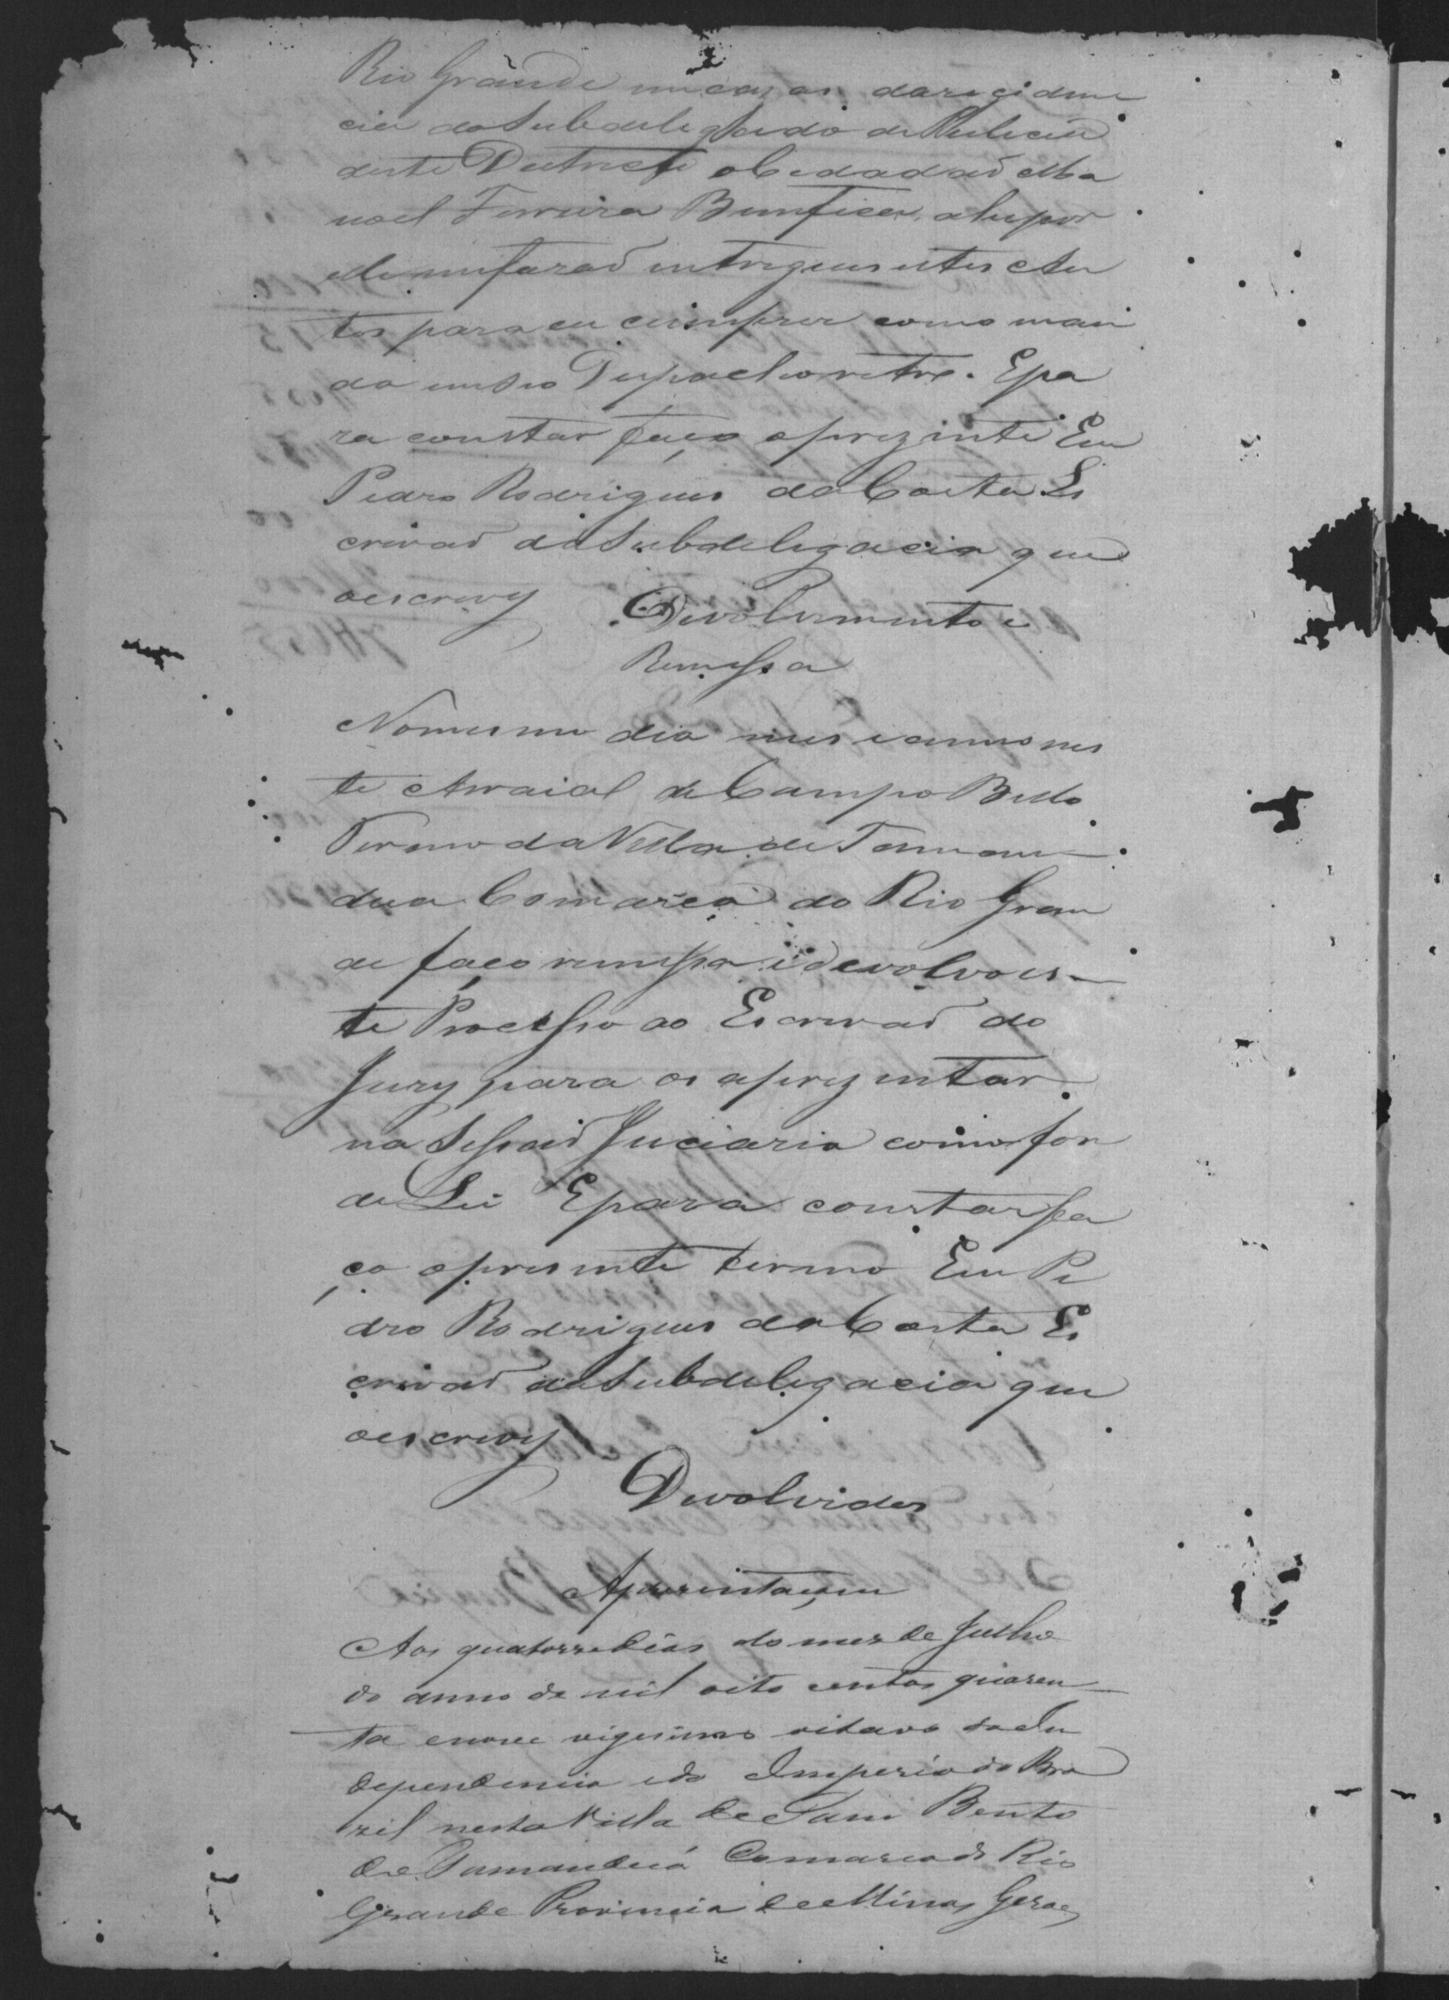 Rio Grande em cazas da reziden
cia do Subdelegado de Pulicia
deste Destricto o Cidadaõ Ma
noel Ferreira Bemfica, ahi por
elle me faraõ entregues estes Au
tos para eu cumprir como man
da em seo Despacho retro. E pa
ra constar faço o prezente Eu
Pedro Rodrigues da Costa Es
crivaõ da Subdelegacia que
o escrevy
Devolvimento e
Remessa
No mesmo dia mes e anno nes
te Arraial de Campo Bello
Termo da Villa de Taman
dua Comarca do Rio Gran
de faço remessa e devolvo es
te Processo ao Escrivaõ do
Jury para os aprezentar
na Sessaõ Juciaria como for
de Lei E para constar fa
ço o presente termo Eu Pe
dro Rodrigues da Costa Es
crivaõ da Subdelegacia que
o escrevy
Devolvidos
Aprezentaçam
Aos quatorze dias do mez de Julho
do anno de mil oito centos quaren
ta e nove vigesimo oitavo da In
dependencia e do Imperio do Bra
zil nesta Villa de Sam Bento
de Tamanduá Comarca do Rio
Grande Provincia de Minas Geraes